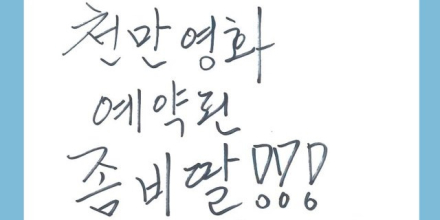 천만영화
예약된
좀비딸!!!